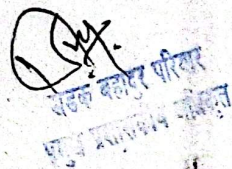 खडक बहादुर परियार
प्रमुख प्रशासकीय अधिकृत